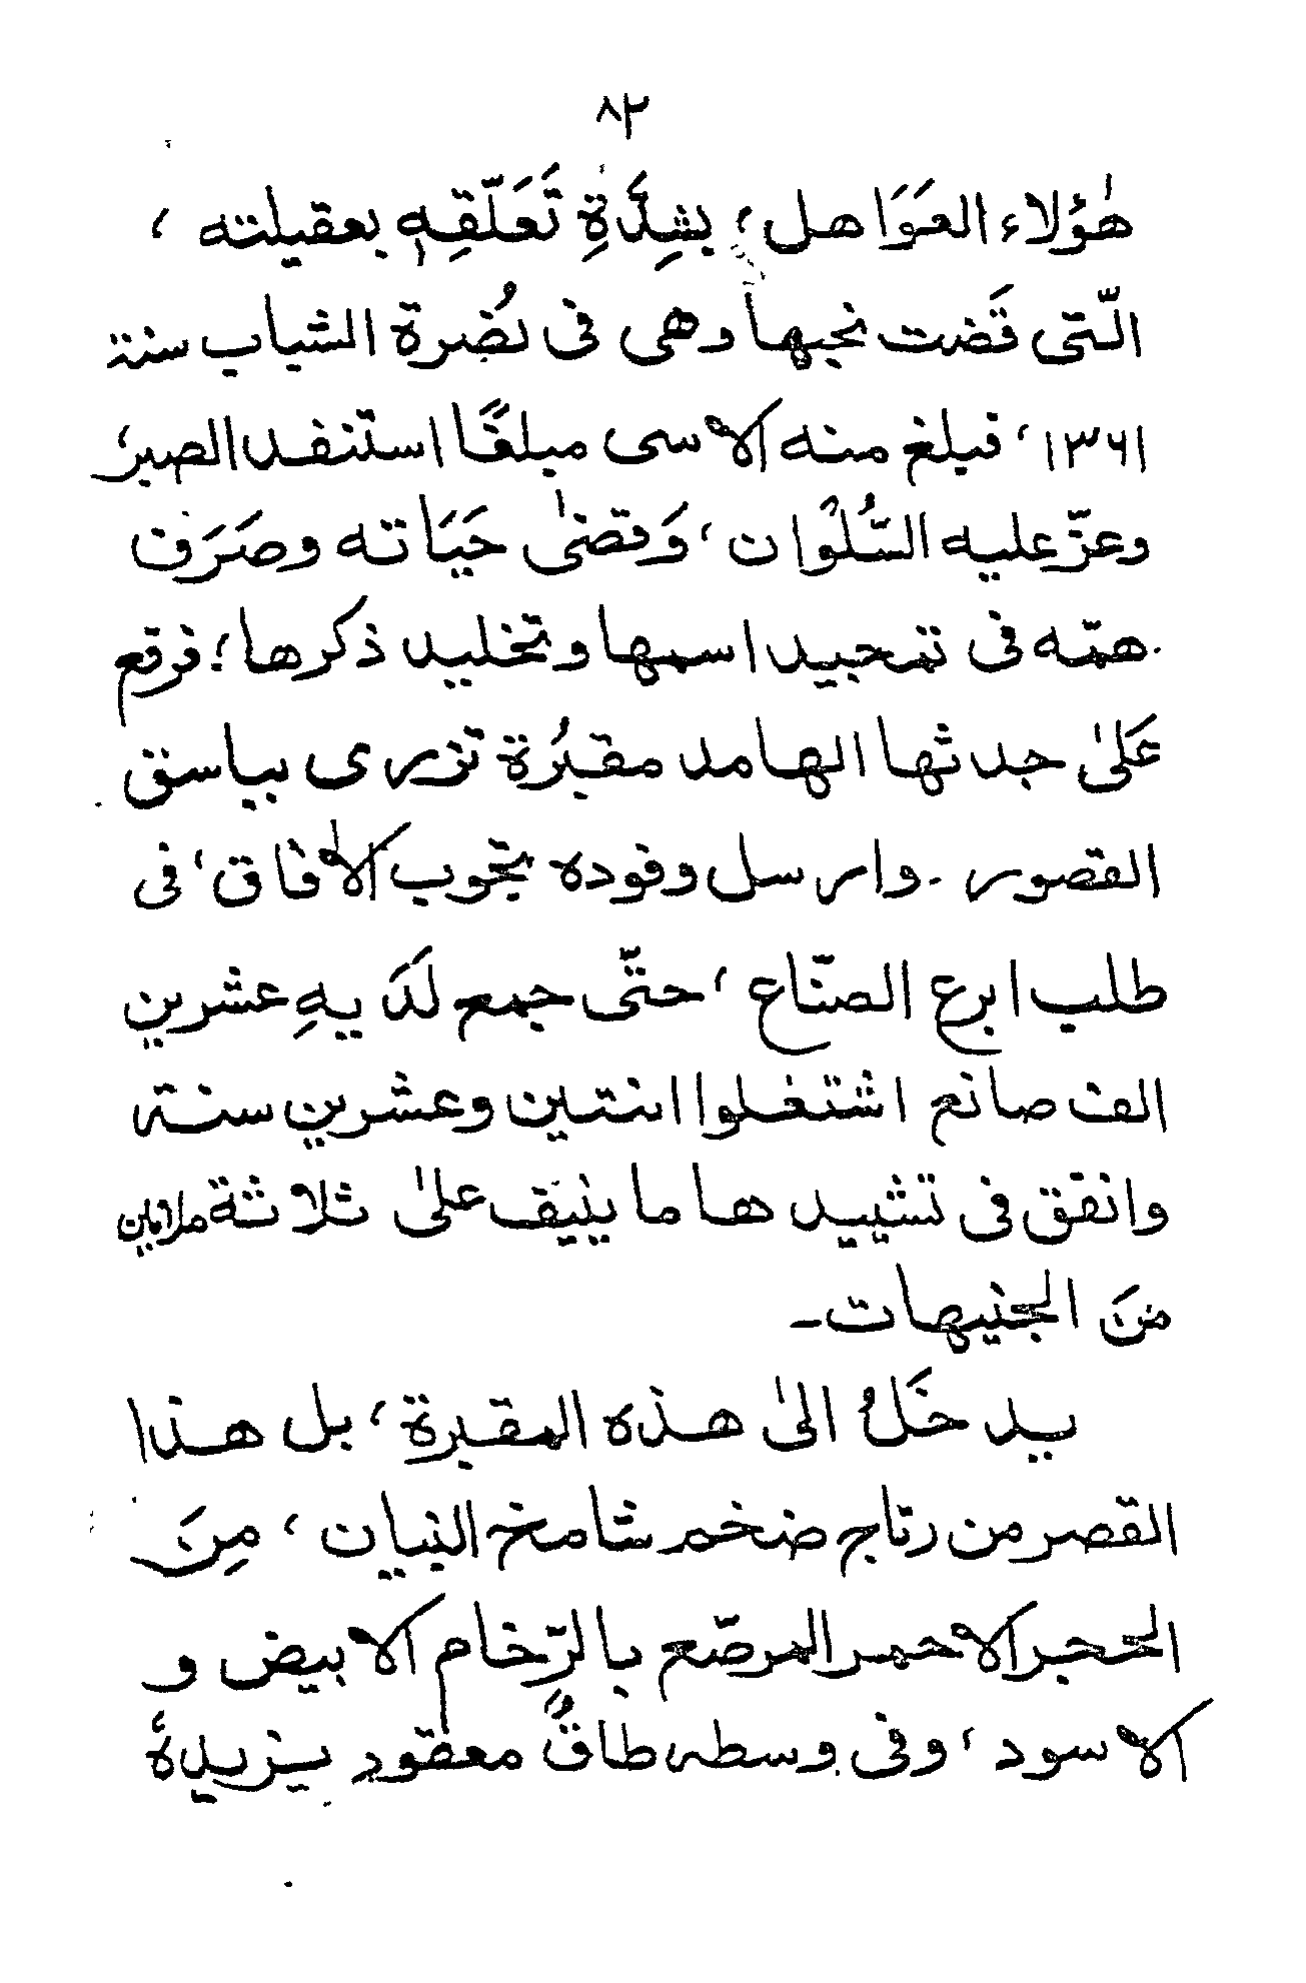 ٨٢
هٰؤلاء العَوَاهل، بشِدَّةِ تَعَلّقِهٖ بعقيلته ،
الّتى قَضت نحبها وهى فى نُضرة الشباب سنة
١٣٦١، فبلغ منه الاسى مبلغًا استنفد الصبرُ
وعزّ عليه السُّلوان، وَقضىٰ حَيَاته وصَرَف
همّته فى تمجيد اسمها وتخليد ذكرها؛ فرقع
عَلىٰ جدثها الهامد مقبُرة تزرى بباسق
القصور . وارسل وفوده تجوب الاٰفاق، فى
طلب ابرع الصنّاع ، حتّى جمع لَدَيهِ عشرين
الف صانع اشتغلوا اثنتين وعشرين سنة
وانفق فى تشييدها ما ينيف علىٰ ثلاثة ملايين
منَ الجنيهات ـ
يدخَلُ الىٰ هذه المقبرة ، بل هذا
القصر من رتاج ضخم شامخ البنيان ، مِنَ
الحجر الاحمر المرصّع بالرّخام الابيض و
الاسود ، وفى وسطه طاقٌ معقود يزيدهٗ